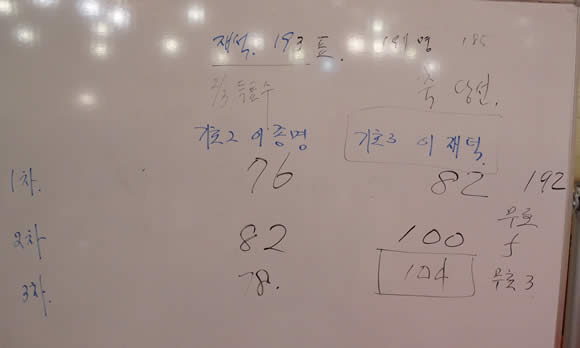 재석. 193 표. 191명 185
2/3 득표수 축 당선.
기호2 이종명 기호3 이재덕
1차. 76 82 192
2차 82 100 무효 5
3차. 78. 104 무효 3